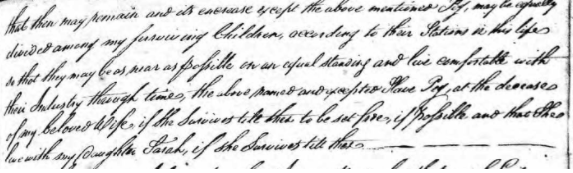 that then may remain and its encrease except the above mentioned Joy, may be equally
divided among my surviving Children, according to their Stations in this life
so that they may be as near as possible on an equal standing and live comfortable with
their Industry through time, the above named and excepted Slave Joy, at the decease
of my beloved Wife, if she survives till then to be set free, if possible and that She
live with my Daughter Sarah, if She Survives till then